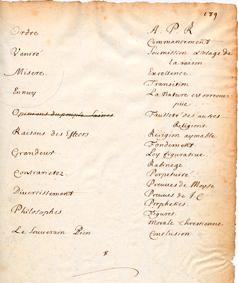 189
Ordre
Vanité
Misere.
Ennuy
Opinions du peuple saines
Raisons des Effects
Grandeur
Contrarietez
Divertissement
Philosophes
Le Souverain Bien
A. P. R
Commancement
Soumission & Usage de
la raison
Excellence
Transition
La Nature est corrom-
pue
Fausseté des autres
Religions.
Religion aymable
Fondement
Loy figurative
Rabinage
Perpetuité
Preuves de Moyse
Preuves de J. C
Propheties
Figures
Morale chrestienne
Conclusion